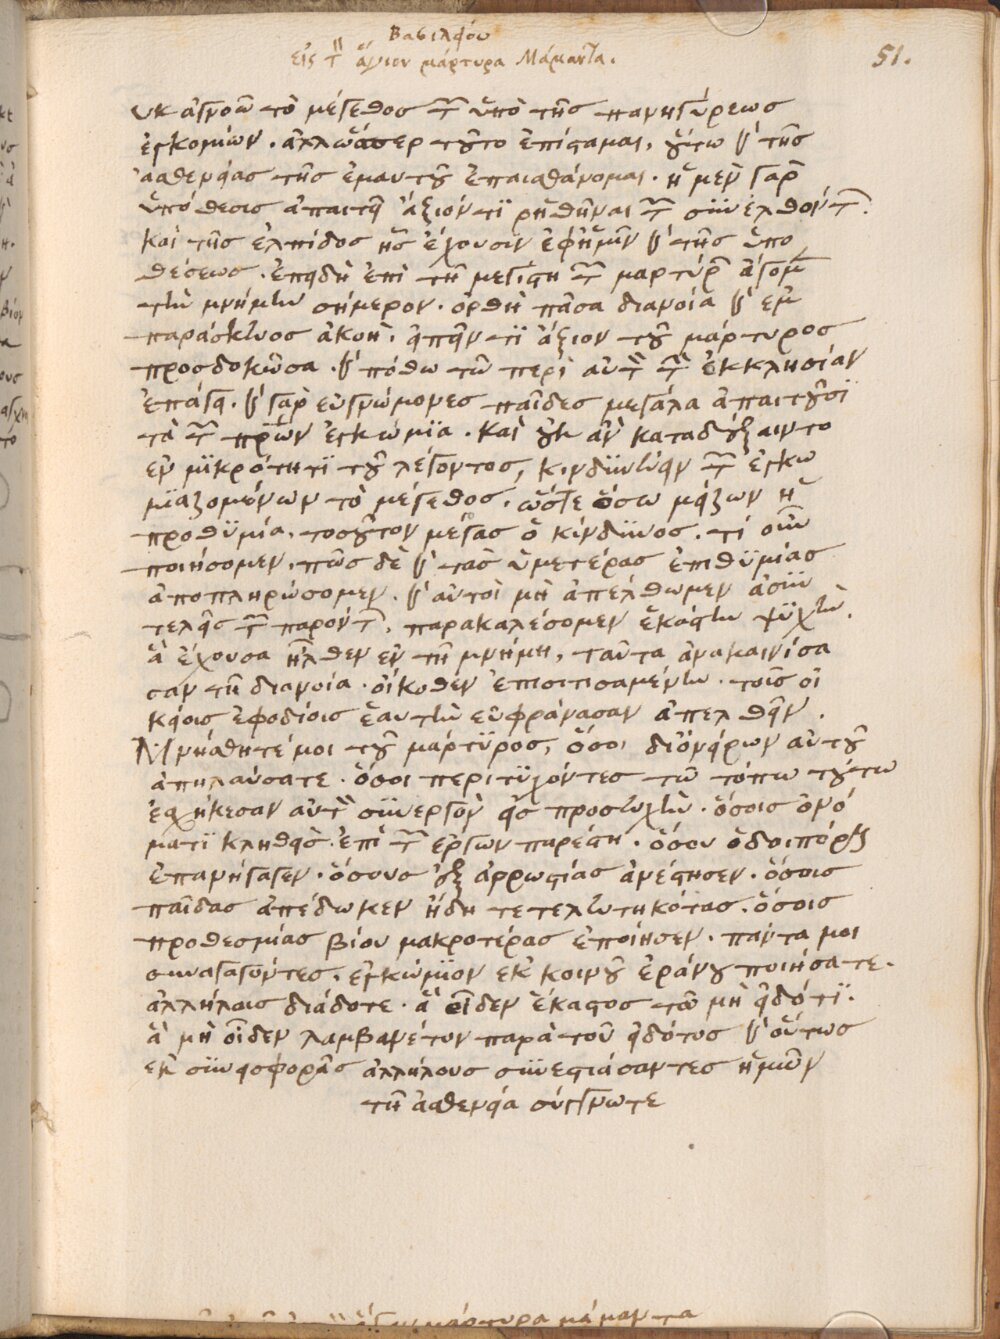 Βασιλείου
εἰς τὸν ἅγιον μάρτυρα Μάμαντα.
51.
υκ ἀγνοῶ τὸ μέγεθος τῶν ὑπὸ τῆς πανηγύρεως
ἐγκομίων. ἀλλ' ὥσπερ τοῦτο ἐπίσταμαι, οὕτω καὶ τῆς
ἀσθενείας τῆς ἐμαυτοῦ ἐπαισθάνομαι. ἡ μὲν γὰρ
ὑπόθεσις ἀπαιτεῖ ἄξιόν τι ρηθῆναι τῶν συνελθόντων.
καὶ τῆς ἐλπίδος ἧς ἔχουσιν ἐφ' ἡμῖν καὶ τῆς ὑπο
θέσεως. ἐπειδὴ ἐπὶ τῇ μεγίστῃ τῶν μαρτύρων ἄγομεν
τὴν μνήμην σήμερον. ὀρθὴ πᾶσα διανοία καὶ ἐμ
παράσκευος ἀκοὴ. εἰπεῖν τι ἄξιον τοῦ μάρτυρος
προσδοκῶσα. καὶ πόθω τῶ περὶ αὐτὸν τὴν ἐκκλησίαν
ἐπάγει. καὶ γὰρ εὐγνώμονες παῖδες μεγάλα ἀπαιτοῦσι
τὰ τῶν πατέρων ἐγκώμια. καὶ οὐκ ἂν καταδέξαιντο
ἐν μικρότητι τοῦ λέγοντος, κινδυνεύειν τῶν ἐγκω
μιαζομένων τὸ μέγεθος. ὥστε ὅσω μείζων ἡ
προθυμία. τοσοῦτον μέγας ὁ κίνδυνος. τί οὖν
ποιήσομεν. πῶς δὲ καὶ τὰς ὑμετέρας ἐπιθυμίας
ἀποπληρώσομεν. καὶ αὐτοὶ μὴ ἀπέλθωμεν ἀσυν
τελεῖς τῶν παρόντων. παρακαλέσομεν ἑκάστην ψυχὴν.
ἃ ἔχουσα ἦλθεν ἐν τῇ μνήμη, ταῦτα ἀνακαινίσα
σαν τῇ διανοία. οἴκοθεν ἐπισιτισαμένην. τοῖς οἰ
κείοις ἐφοδίοις ἑαυτὴν εὐφράνασαν ἀπελθεῖν.
Μνήσθητέ μοι τοῦ μάρτυρος, ὅσοι δι' ὀνείρων αὐτοῦ
ἀπηλαύσατε. ὅσοι περιτυχόντες τῶ τόπω τούτω
ἐσχήκεσαν αὐτὸν συνεργὸν εἰς προσευχὴν. ὅσοις ὀνό
ματι κληθεὶς. ἐπὶ τῶν ἔργων παρέστη. ὅσου ὁδοιπόρους
ἐπανήγαγεν. ὅσους ἐξ ἀρρωστίας ἀνέστησεν. ὅσοις
παῖδας ἀπέδωκεν ἤδη τετελευτηκότας. ὅσοις
προθεσμίας βίου μακροτέρας ἐποίησεν. πάντα μοι
συναγαγόντες. ἐγκώμιον ἐκ κοινοῦ ἐράνου ποιήσατε.
ἀλλήλοις διάδοτε. ἃ οἶδεν ἕκαστος τῶ μὴ εἰδότι.
ἃ μὴ οἶδεν λαμβανέτω παρὰ τοῦ εἰδότος καὶ οὕτως
ἐκ συνεισφορᾶς ἀλλήλους συνεστιάσαντες ἡμῶν
τῇ ἀσθενεία σύγγνωτε
μάρτυρα μάμαντα